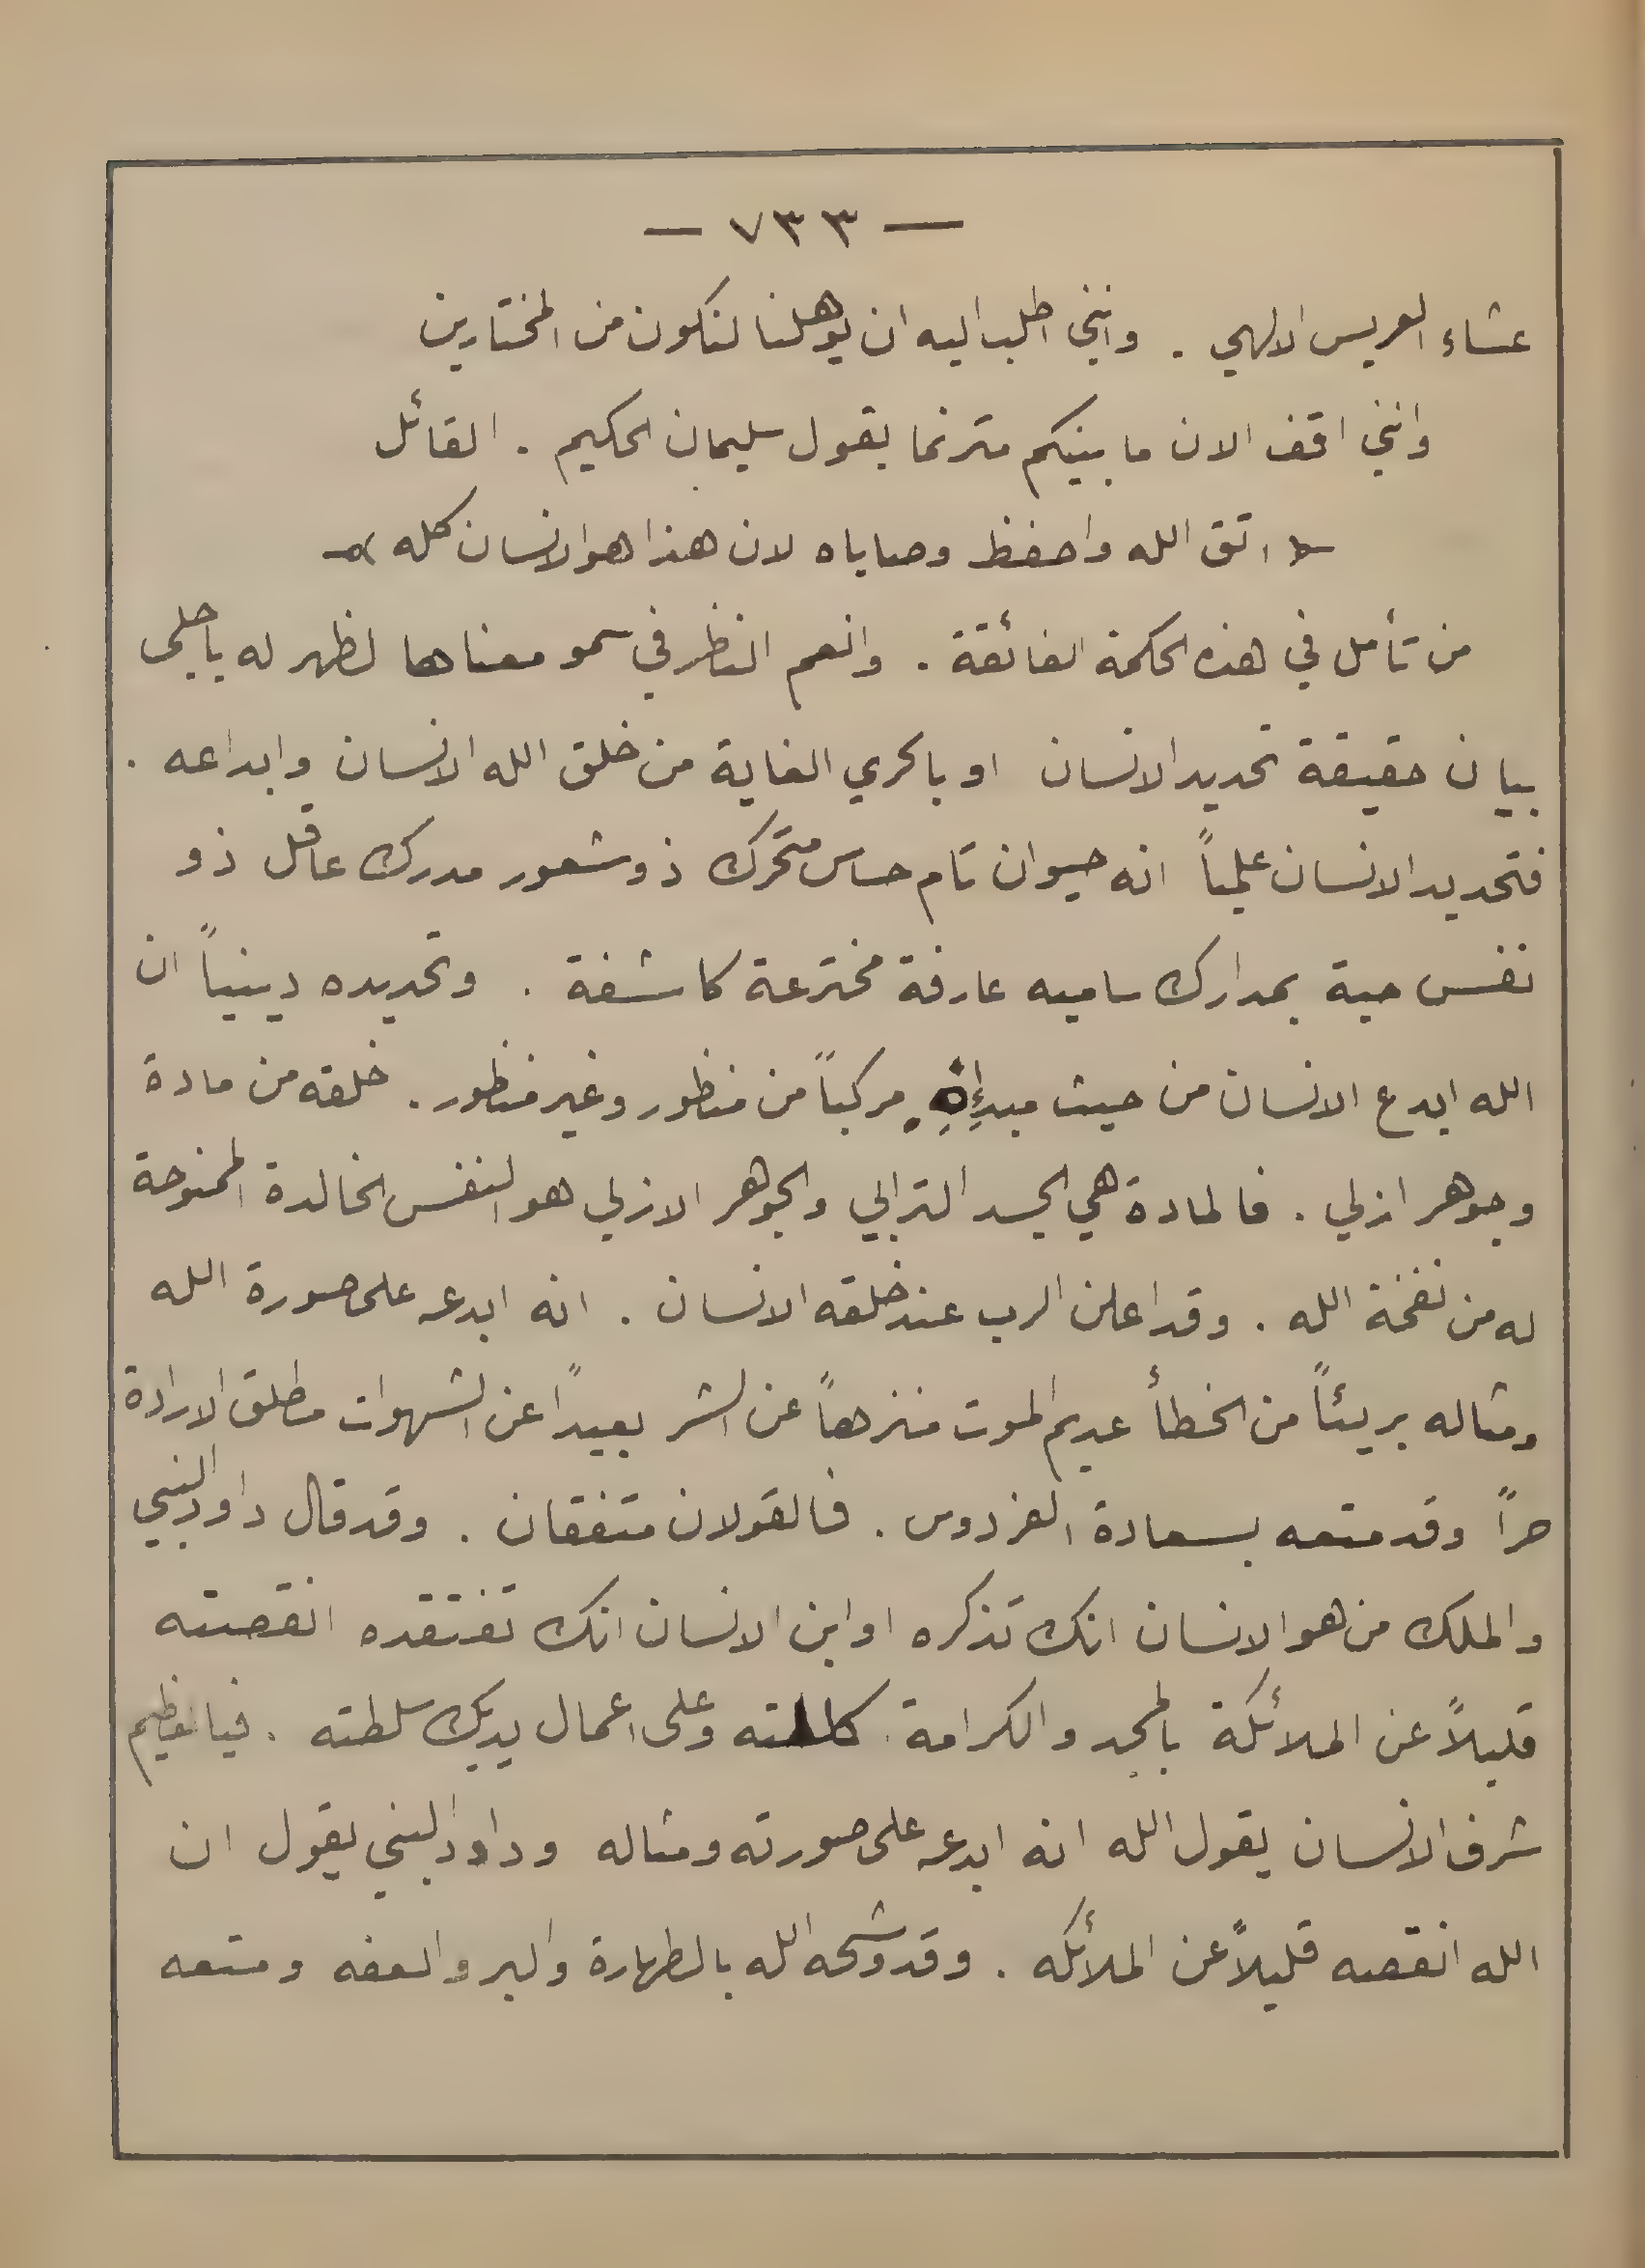 — ٧٣٣ —
عشاء العريس الالهي . وانني اطلب اليه ان يوهلنا لنكون من المختارين
وانني اقف الان ما بينكم مترنما بقول سليمان الحكيم . القائل
اتق الله واحفظ وصاياه لان هذا هو الانسان كله
من تأمل في هذه الحكمة الفائقة . وانعم النظر في سمو معناها لظهر له باجلى
بيان حقيقة تحديد الانسان او بالحري الغاية من خلق الله الانسان وابداعه .
فتحديد الانسان علمياً انه حيوان تام حساس متحرك ذو شعور مدرك عاقل ذو
نفس حية بمدارك ساميه عارفة مخترعة كاشفة . وتحديده دينياً ان
الله ابدع الانسان من حيث مركباً من منظور وغير منظور . خلقه من مادة
وجوهر ازلي . فالمادة هي الجسد الترابي والجوهر الازلي هو النفس الخالدة الممنوحة
له من نفخة الله . وقد اعلن الرب عند خلقه الانسان . انه ابدعه على صورة الله
ومثاله بريئاً من الخطأ عديم الموت منزهاً عن الشر بعيداً عن الشهوات مطلق الارادة
حراً وقد متعه بسعادة الفردوس . فالقولان متفقان . وقد قال داود النبي
والملك من هو الانسان انك تذكره او ابن الانسان انك تفتقده انقصته
قليلاً عن الملائكة بالمجد والكرامة . كللته وعلى اعمال يديك سلطته . فيا لعظيم
شرف الانسان يقول الله انه ابدعه على صورته ومثاله وداود النبي يقول ان
الله انقصه قليلاً عن الملائكه . وقد وشحه الله بالطهارة والبر والعفه ومتعه